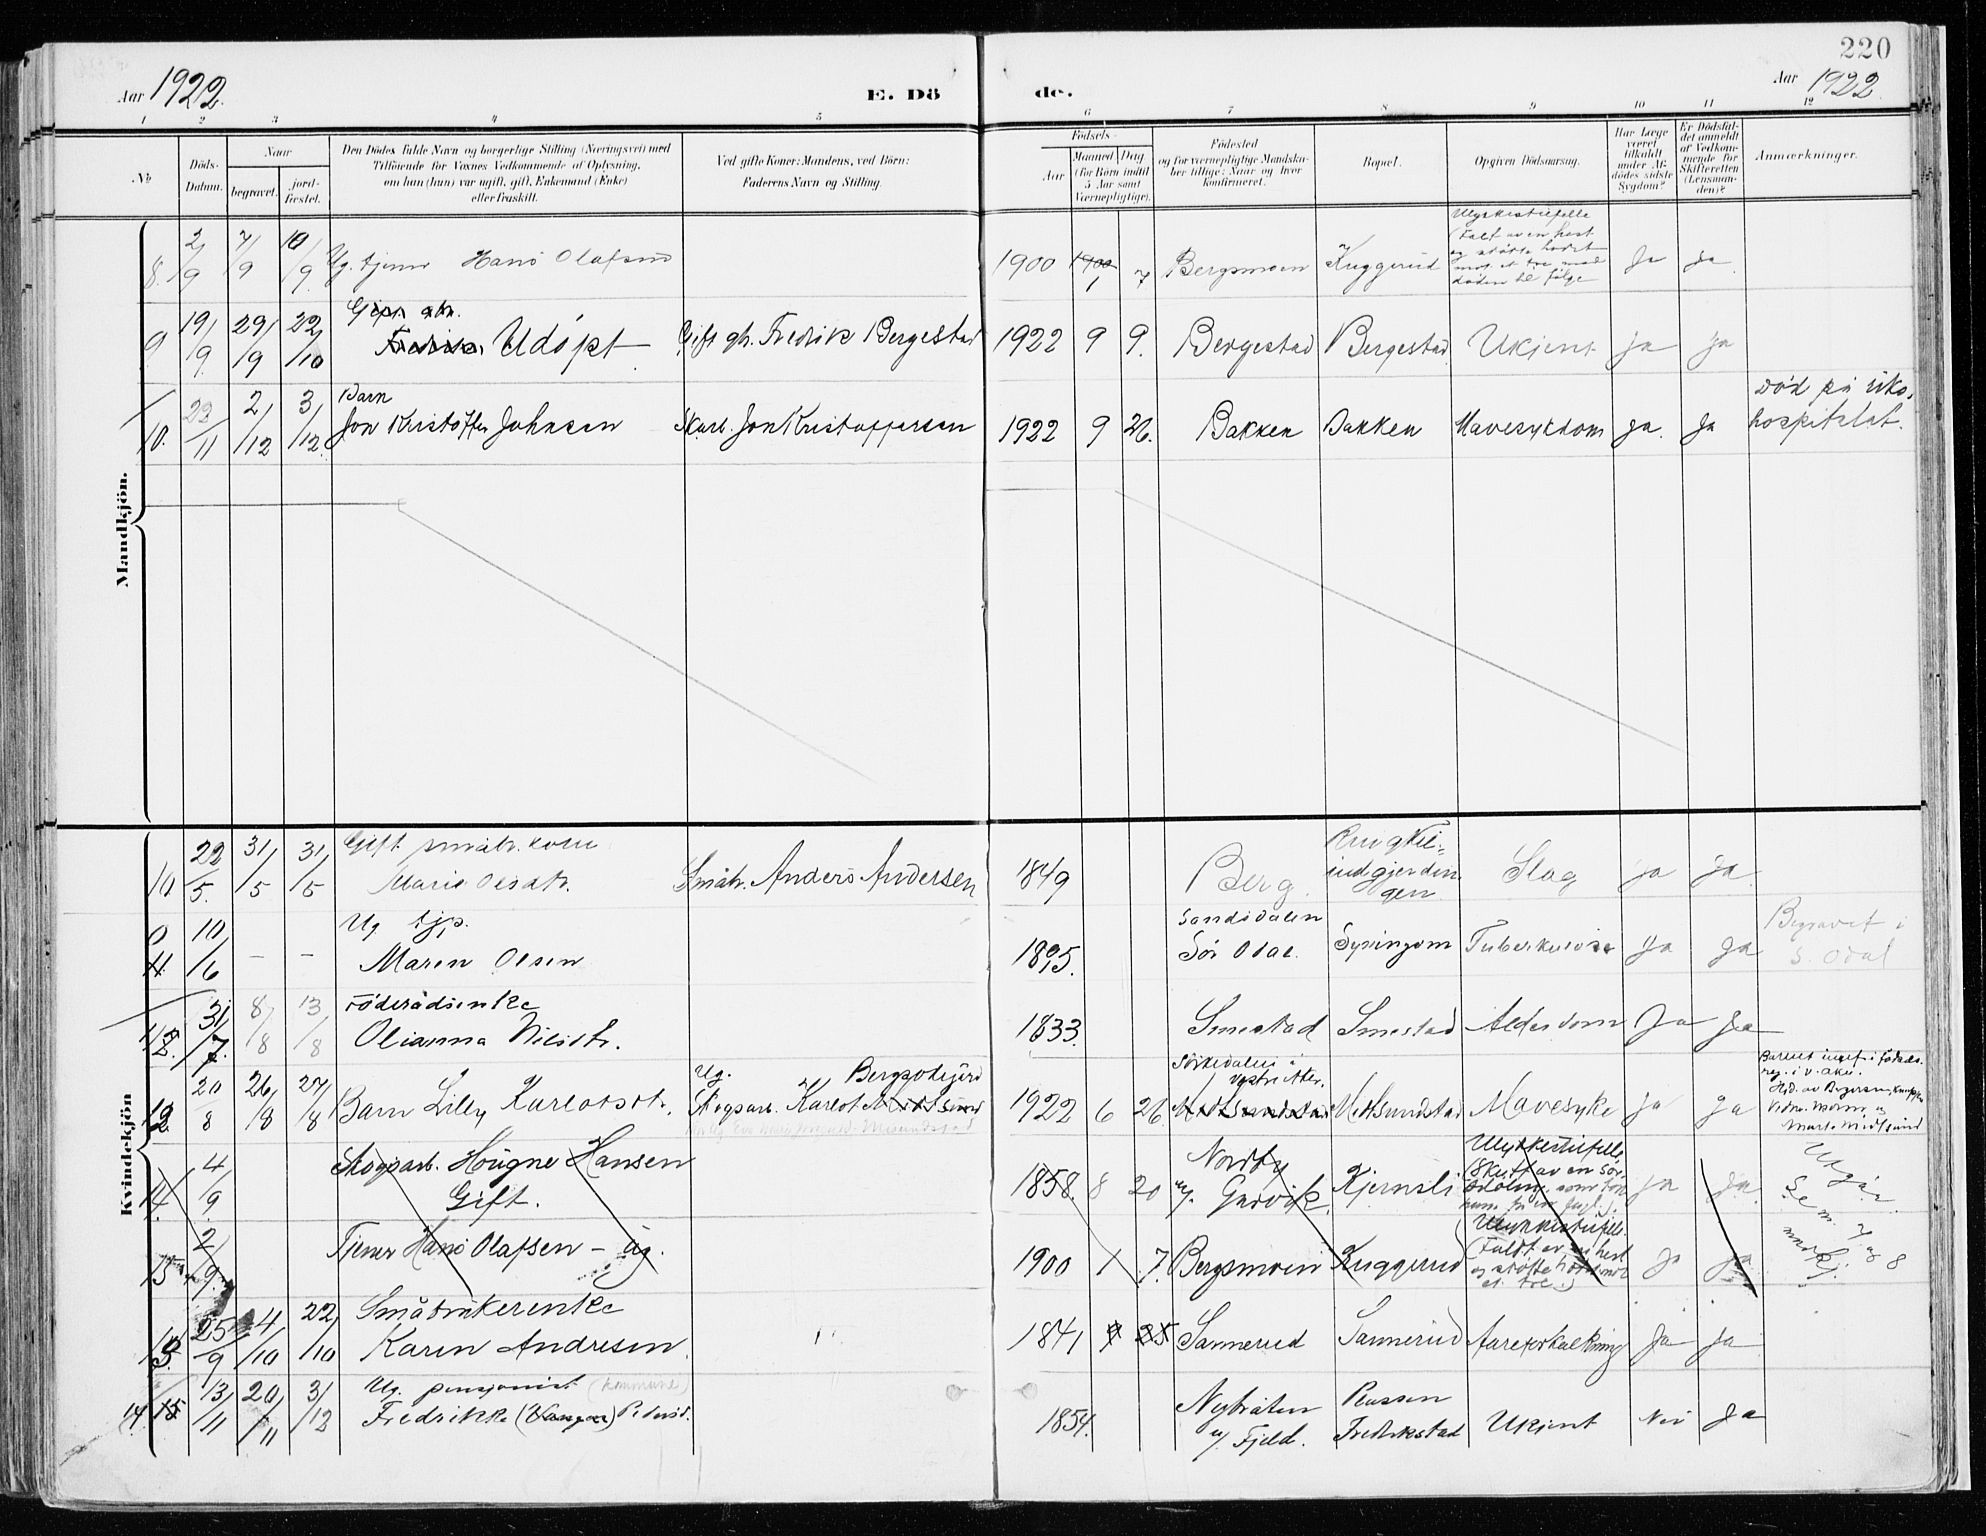 220
Aar 1922.
E. Dö
de.
Aar 1922.
1 2 3 4 5 6 7 8 9 10 11 12
No
Döds-
Datum.
Naar
begravet.
jord-
fæstet.
Den Dödes fulde Navn og borgerlige Stilling (Næringsvei) med
Tilföiende for Voxnes Vedkommende af Oplysning,
om han (hun) var ugift, gift, Enkemand (Enke)
eller fraskilt.
Ved gifte Koner: Mandens, ved Börn:
Faderens Navn og Stilling.
Födsels-
Aar
Maaned
Dag
(for Börn indtil
5 Aar samt
Værnepligtige).
Födested
og for værnepligtige Mandska-
ber tillige: Naar og hvor
konfirmeret.
Bopæl.
Opgiven Dödsaarsag.
Har Læge
været
tilkaldt
under Af-
dödes sidste
Sygdom?
Er Dödsfal-
det anmeldt
af Vedkom-
mende for
Skifteretten
(Lensman-
den)?
Anmærkninger.
Mandkjön.
8. 2/9 7/9 10/9 Ug. tjener Hans Olafsen 1900 1 7 Bergsmoen Kuggerud Ulykkestilfelle
(Falt av en hest
og støtte hodet
mot et tre med
døden til følge
Ja ja
9 19/9 29/9 22/10 Udöpt Gift gb. Fredrik Bergestad 1922 9 9. Bergestad Bergestad Ukjent ja ja
10. 22/11 2/12 3/12 Barn
Jon Kristoffer Johnsen Skarb. Jon Kristoffersen 1922 9 26. Bakken Bakken Mavesykdom ja. ja
Död på riks-
hospitalet.
Kvindekjön
10 22/5. 31/5 31/5 Gift småbr. kone
Marie Olsdtr. Småbr. Anders Andersen 1849 Berg. Slag ja ja
10/6 - - Ug tjp.
Maren Olsen 1895. Sandsdalen
Sör Odal. Syningom Tuberkulose ja ja Begravet i
S. Odal
31/7. 8/8 13/8 Föderådsenke
Olianna Nilsdtr. 1833. Smestad Smestad Alderdom Ja ja
12 20/8 26/8 27/8 Barn Lilly Karlotsdtr. Ug.
Skogsarb. Karlot Bergsokjörd 1922 6 26. Sörkedalen i
vestre Aker. Midtsundstad Mavesyke ja ja
14. 4/9 Skogsarb. Högne Hansen
Gift. 1858. 8 20 Nordby
u/. Gurvik Kjernsli Ulykkestilfelle
ja ja. Utgår.
Se nr. 7 og 8
mndkj.
15 2/9. Tjener Hans Olafsen - ug. 1900 1 7. Bergsmoen Kuggerud Ulykkestilfelle.
(Faldt av en hest
og støtte hodet mot
et tre.)
ja ja
13. 25/9 4/10 22/10 Småbrukerenke
Karen Andresen. 1841 9 25 Sannerud Sannerud Aareforkalkning ja ja
14. 15 13/11 20/11 3/12 Ug. pensjonist (kommune)
Fredrikke Pedersd. 1854. Nybråten
u/ Fjeld. Fredrikstad Ukjent Nei ja